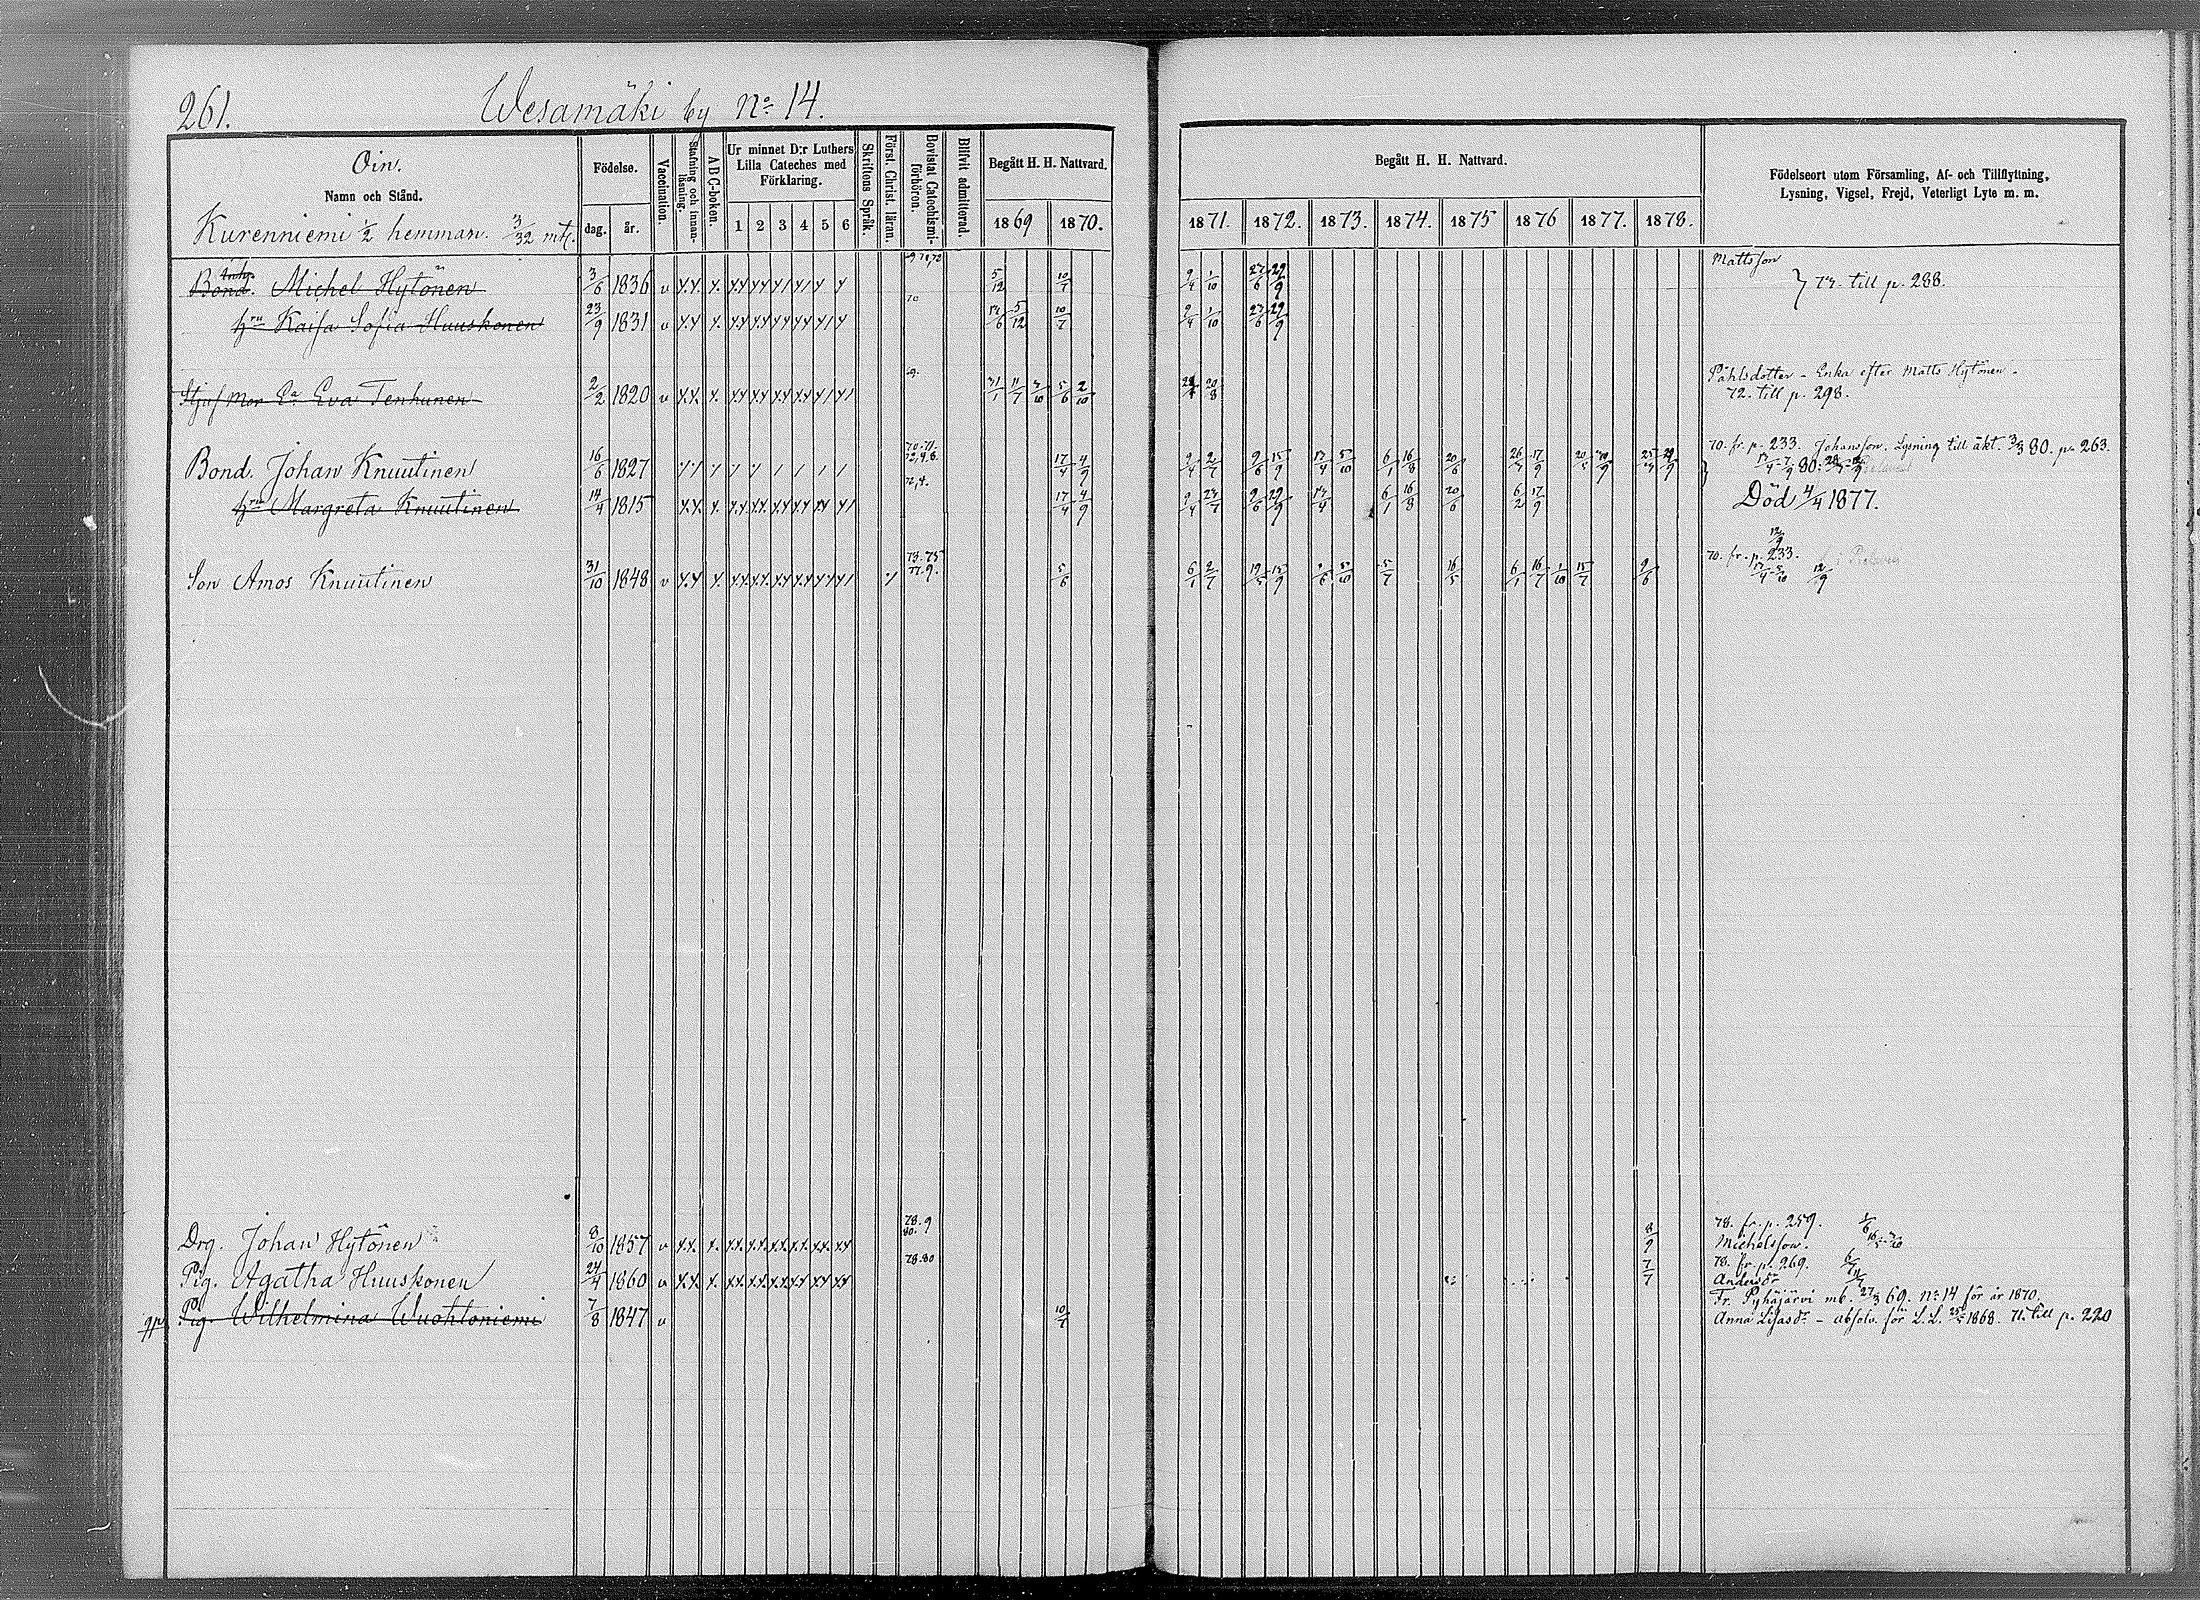 261.
Wesamäki by No 14.
Oin.
Namn och Stånd.
Kurenniemi 1/2 hemman. 3/32 mtl.
Födelse.
dag. år.
Vaccination.
Stafning och innanläsning.
A B C-boken.
Ur minnet D:r Luthers
Lilla Cateches med
Förklaring.
1 2 3 4 5 6
Skriftens Språk.
Först. Christ. läran.
Bevistat Catechismiförhören.
Blifvit admitterad.
Begått H. H. Nattvard.
1869 1870.
Begått H. H. Nattvard.
1871. 1872. 1873. 1874. 1875 1876 1877. 1878.
Födelseort utom Församling, Af- och Tillflyttning,
Lysning, Vigsel, Frejd, Veterligt Lyte m. m.
Mattsson
Bond. Michel Hytönen 3/6 1836 v 5/12 10/7 9/4 1/10 27/6 29/9 72. till p. 288.
hru Kaisa Sofia Huuskonen 23/9 1831 v 5/12 10/7 9/4 1/10 27/6 29/9
Påhlsdotter - Enka efter Matts Hytönen.
Stjufmor Ea Eva Tenhunen 2/2 1820 v 31/1 11/7 3/10 5/6 2/10 20/8 72. till p. 298.
70. fr. p. 233. Johansson. Lysning till äkt. 3/3 80. p. 263.
Bond. Johan Knuutinen 16/6 1827 17/4 4/9 9/4 2/7 9/6 15/9 17/4 5/10 6/1 16/8 20/6 17/9
hru Margreta Knuutinen 14/4 1815 17/4 4/9 9/4 9/6 29/9 17/4 6/1 16/8 20/6 6/2 17/9 Död 4/4 1877.
70. fr. p. 233.
Son Amos Knuutinen 31/10 1848 v 5/6 6/1 2/7 15/9 5/7 16/5 6/1 16/7 1/10 15/7 9/6 12/9
78. fr. p. 259.
Drg. Johan Hytönen 8/10 1857 v 8/9 Michelsson.
78. fr. p. 269.
Pig. Agatha Huuskonen 24/4 1860 v 7/7 Andersdr
Fr. Pyhäjärvi mb. 27/3 69. No 14 för år 1870.
Pig. Wilhelmina Wuohtoniemi 7/8 1847 v 10/7 Anna Lisasdr - absolv. för L. L. 1868. 71. till p. 220